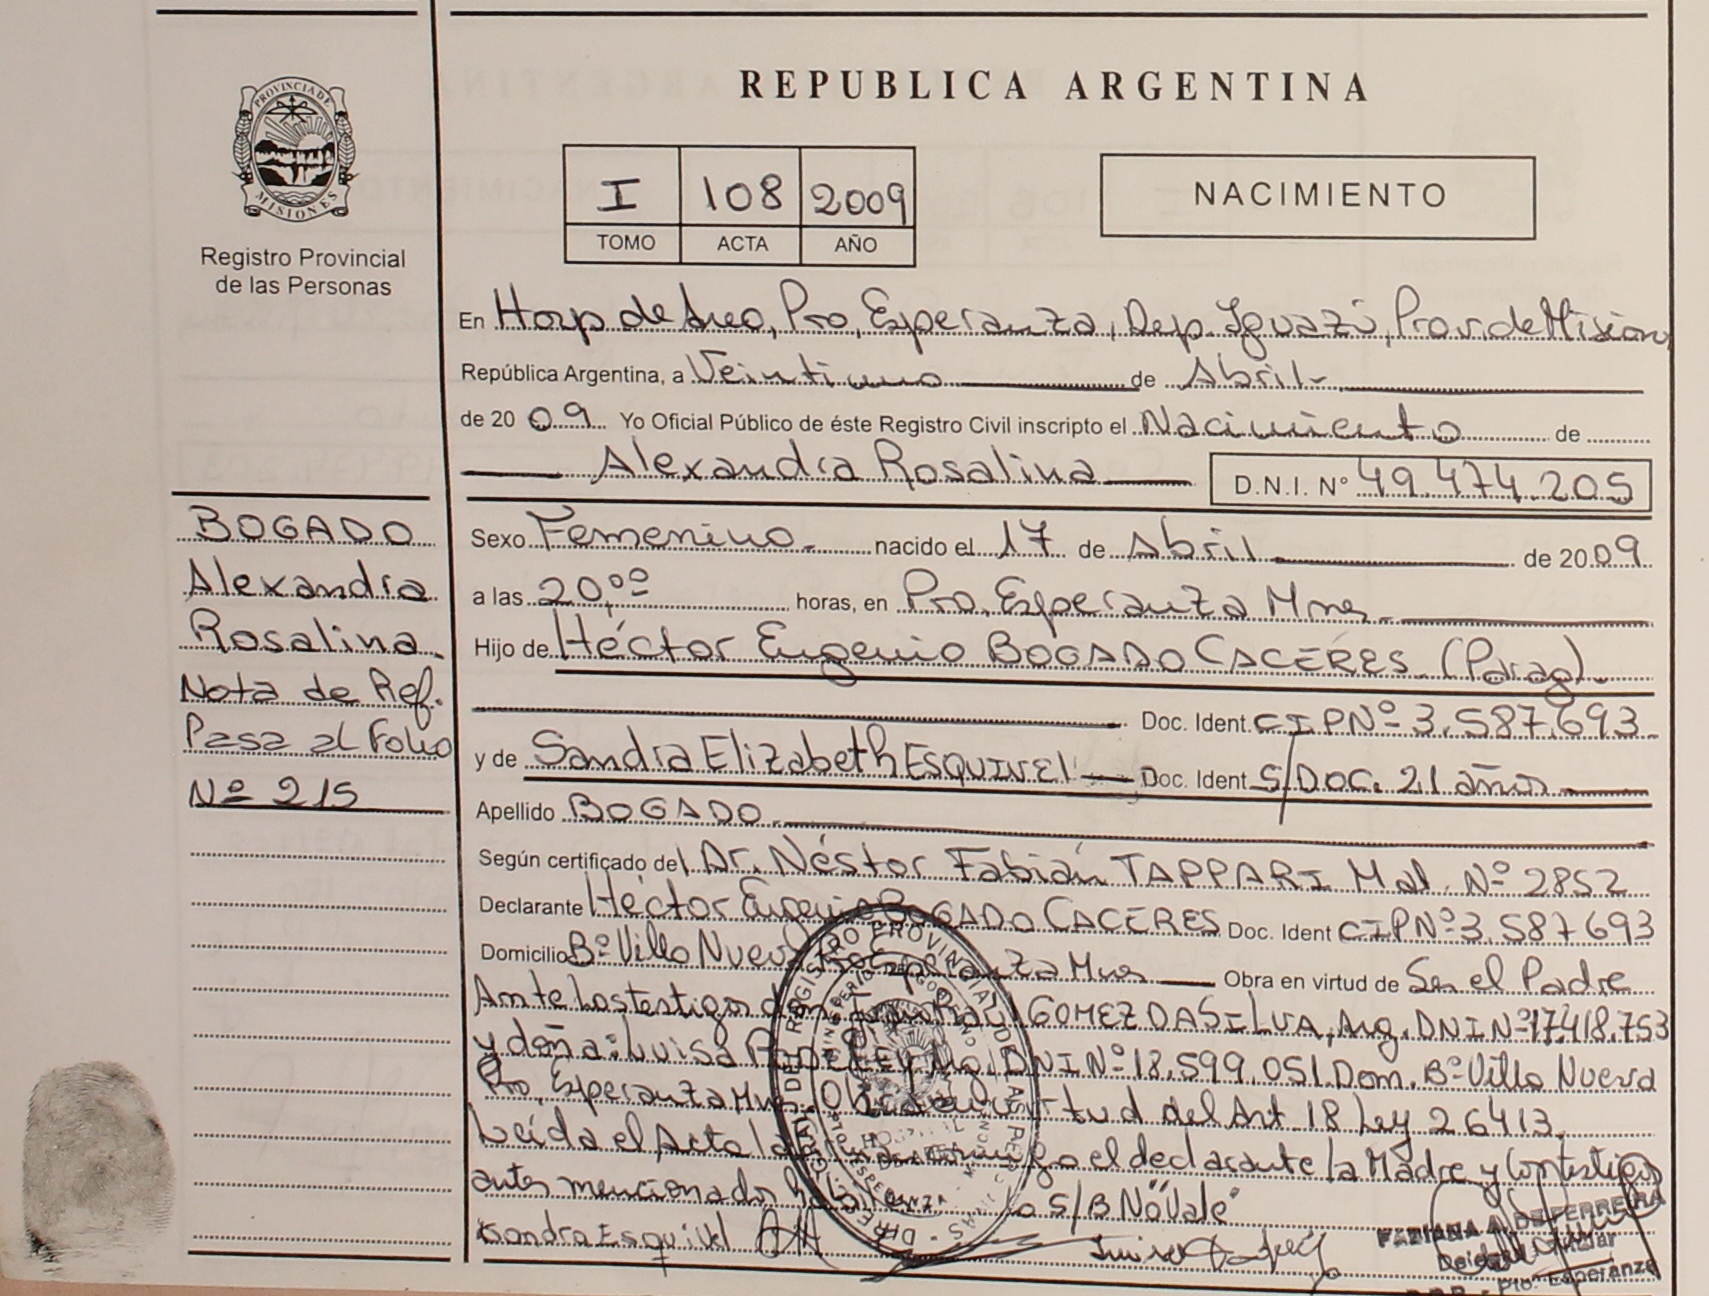 REPUBLICA ARGENTINA
PROVINCIA DE
MISIONES
Registro Provincial
de las Personas
I 108 2009
TOMO ACTA AÑO
NACIMIENTO
En Hosp de Area, Pto, Esperanza, Dep. Iguazú, Prov. de Misiones
República Argentina, a Veintiuno de Abril
de 2009 Yo Oficial Público de éste Registro Civil inscripto el Nacimiento de
Alexandra Rosalina D.N.I. N° 49.474.205
BOGADO
Alexandra
Rosalina.
Nota de Ref.
Pasa al Folio
Nº 215
Sexo Femenino. nacido el 17 de Abril de 2009
a las 20,00 horas, en Pto. Esperanza Mnes
Hijo de Héctor Eugenio BOGADO CACERES (Parag).
Doc. Ident. CIPNº 3.587.693
y de Sandra Elizabeth ESQUIVEL Doc. Ident. S/DOC. 21 años
Apellido BOGADO
Según certificado del Dr. Néstor Fabián TAPPARI Mat. Nº 2852
Declarante Héctor Eugenio BOGADO CACERES Doc. Ident CIPNº 3.587693
Domicilio Bº Villa Nueva Pto Esperanza Mnes Obra en virtud de Ser el Padre
Ante Los testigos don GOMEZ DA SILVA, Arg. DNI Nº 17.418.753
y doña: Luisa Arg. DNI Nº 18.599.051 Dom. Bº Villa Nueva
Pto, Esperanza Mnes. del Art 18 Ley 26413.
Leída el Acta la el declarante la Madre y Los testigos
antes mencionados S/B No"Vale"
Sandra Esquivel
FABIANA A. DE FERREIRA
Pto. Esperanza